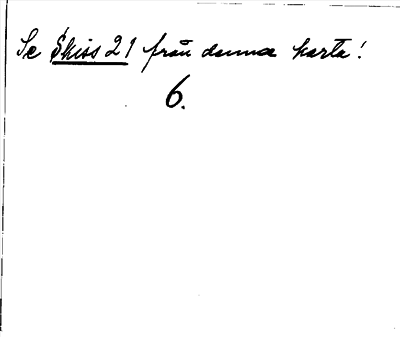 Se Skiss 21 från denna karta!
6.